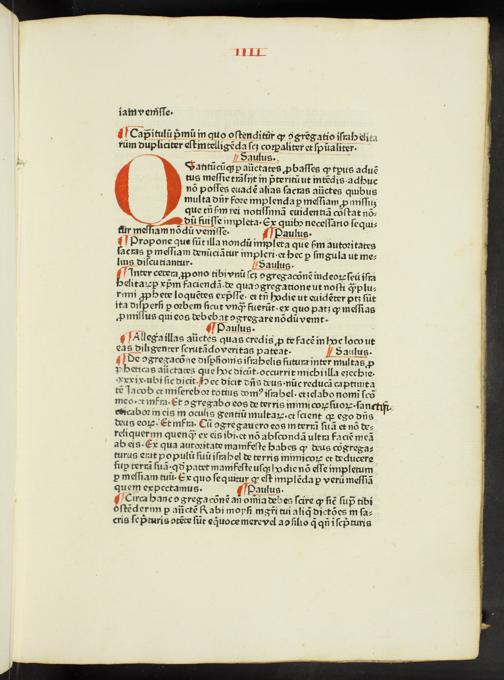 IIII
iam veniſſe.
¶ Capĩtulũ p̃mũ in quo oſtenditur qꝫ ↄgregatio iſrahelita
rum dupliciter eſt intelligẽda ſcꝫ corꝑaliter et ſpũaliter.
Saulus.
Quãtũcũqꝫ ꝑ auctates
tus meſſie trãſit in p̃teritũ ut intẽdis. adhuc
nõ poſſes euadẽ alias ſacras auctes quibus
multa dnr̃ fore implenda ꝑ meſſiam
que tñ ſm̃ rei notiſſimã euidentiã cõſtat nõ
dũ fuiſſe impleta. Ex quibꝫ neceſſario ſequi
tur meſſiam nõdũ veniſſe. ¶ Paulus.
¶ Propone que ſũt illa nondũ impleta que ſm̃ autoritates
ſacras ꝑ meſſiam denũciãtur impleri. et hec ꝑ ſingula ut me
lius diſcutiantur. Saulus.
¶ Inter cetera ꝓpono tibi vnũ ſcꝫ ↄgregacõne iudeoꝝ ſeu iſra
helitaꝝ ꝑ xp̃m faciendã. de qua ↄgregatione ut noſti qꝫ plu
rimi ꝓphete loquẽtes
ita diſperſi ꝑ orbem ſicut vnqꝫ fuerũt. ex quo patꝫ qꝫ meſſias
ꝓmiſſus qui eos debebat ↄgregare nõdũ venit.
¶ Paulus.
¶ Allega illas auctes quas credis ꝓ te facẽ in hoc loco ut
eas diligenter ſcrutãdo veritas pateat. Saulus.
¶ De ↄgregacõne diſꝑſionis iſrahelis futura inter multas ꝓ
pheticas auctates que hoc dicit. occurrit michi illa ezechie.
xxxix. ubi ſic dicit. Hec dicit dñs deus. nũc reducã captiuita
tẽ Jacob et miſerebor totius domꝰ iſrahel. et zelabo nomĩ ſcõ
meo. et infra. Et ↄgregabo eos de terris inimicoꝝ ſuoꝝ. ſanctifi-
cabor in eis in oculis gentiũ multaꝝ. et ſcient qꝫ ego dñs
deus eoꝝ. Et infra. Cũ ↄgregauero eos in terrã ſuã et nõ de-
reliquerim quenqꝫ ex eis ibi. et nõ abſcondã ultra faciẽ meã
ab eis. Ex qua autoritate manifeſte habes qꝫ deus cõgrega-
turus erat populũ ſuũ iſrahel de terris inimicoꝝ et deducere
ſuꝑ terrã ſuã. qd̃ patet manifeſte uſqꝫ hodie nõ eſſe impletum
ꝑ meſſiam tuũ. Ex quo ſequitur qꝫ eſt implẽda ꝑ verũ meſſiã
quem expectamus. ¶ Paulus.
¶ Circa hanc ↄgregacõne an̄ omĩa debes ſcire qꝫ ſic̃ ſup̃ tibi
oſtẽderim ꝑ auctẽ Rabi moyſi mgr̃i tui aliq̃ dictões in ſa-
cris ſcp̃turis